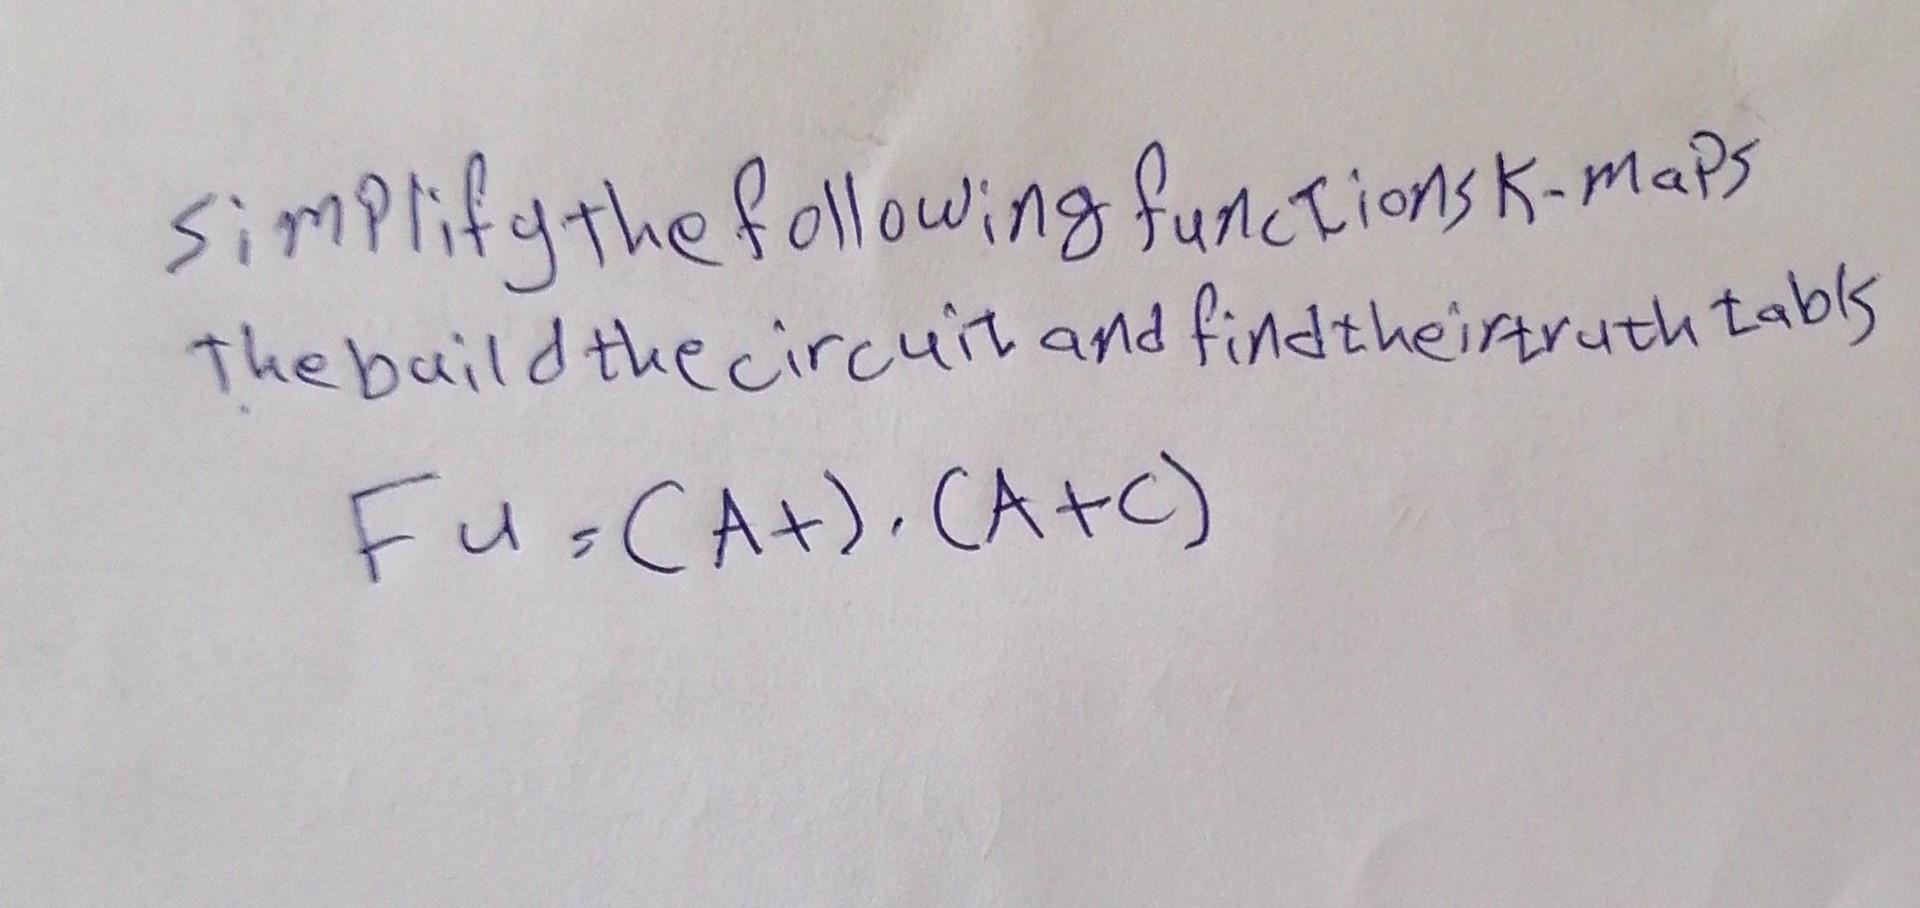 simplify the following functions K-maps
The build the circuit and find their truth tabls
Fu = (A+).(A+C)